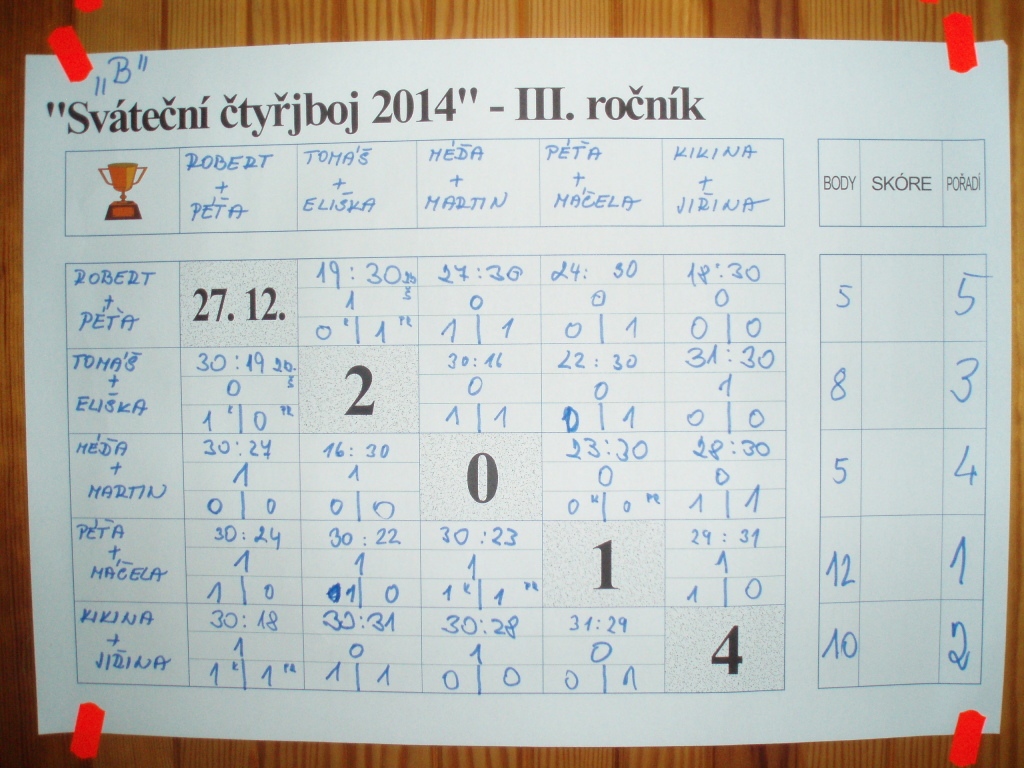 „B"
"Sváteční čtyřjboj 2014" - III. ročník
ROBERT + PÉŤA TOMÁŠ + ELIŠKA MÉĎA + MARTIN PÉŤA + MÁČELA KIKINA + JIŘINA BODY SKÓRE POŘADÍ
ROBERT 19:30 27:30 24: 30 18:30
+ 27. 12. 1 0 0 0 5 5
PÉŤA 0 1 1 1 0 1 0 0
TOMÁŠ 30:19 30:16 22:30 31:30
+ 0 2 0 0 1 8 3
ELIŠKA 1 0 1 1 0 1 0 0
MÉĎA 30:27 16:30 23:30 28:30
+ 1 1 0 0 0 5 4
MARTIN 0 0 0 0 0 0 1 1
PÉŤA 30:24 30:22 30:23 29:31
+ 1 1 1 1 1 12 1
MÁČELA 1 0 1 0 1 1 1 0
KIKINA 30:18 30:31 30:28 31:29
+ 1 0 1 0 4 10 2
JIŘINA 1 1 1 1 0 0 0 1